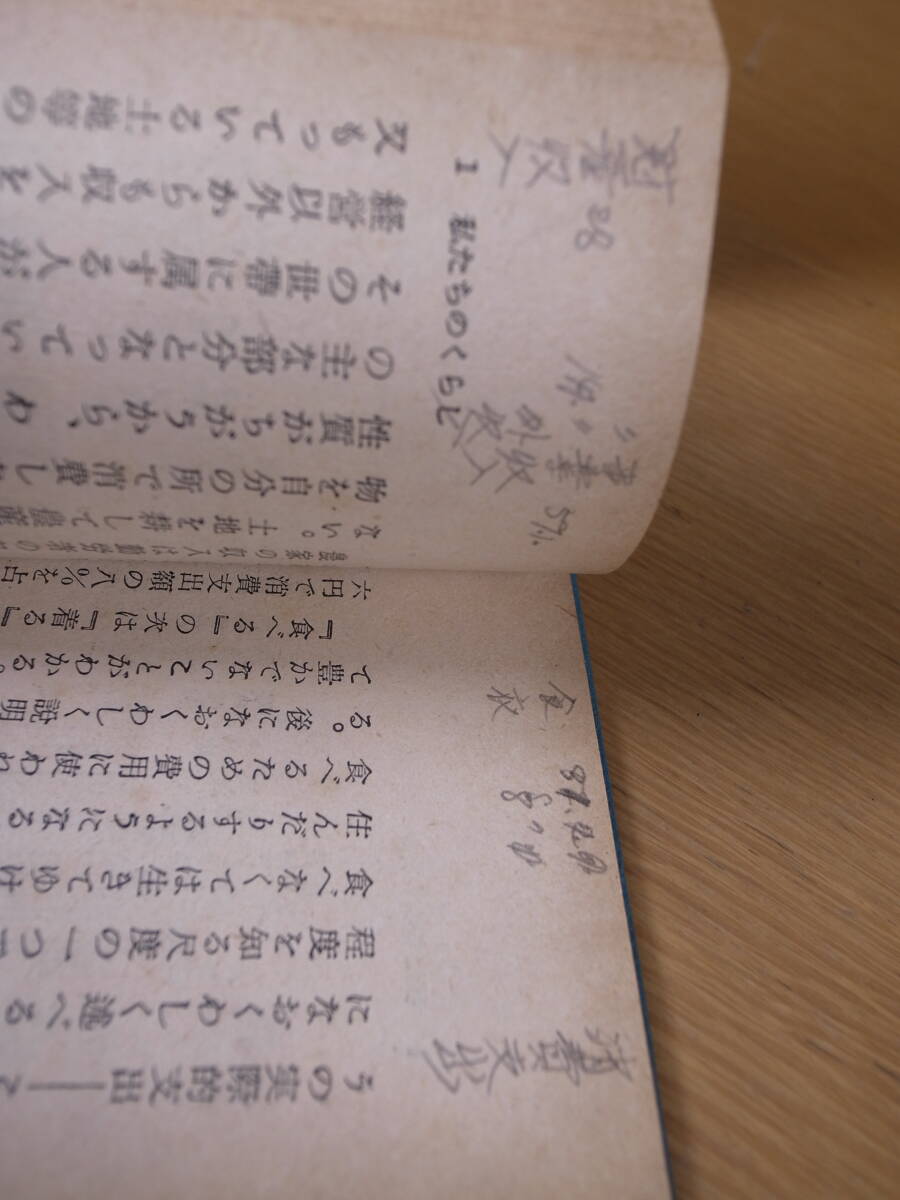 消費支出
うの実際的支出――
になおくわしく述べる
程度を知る尺度の一つ
食べなくては生きてゆけ
住んだりするようになる
食べるための費用に使われ
る。後になおくわしく説明
て豊かでないことがわかる。
『食べる』の次は『着る』
六円で消費支出額の八%を占
食
衣
1 私たちのくらし
農家の収入は勤労者の
ない。土地を耕して農産
物を自分の所で消費した
性質がちがうから、わ
の主な部分となってい
その世帯に属する人が
経営以外からも収入を
又もっている土地等の
事業
外収
財産収入
28